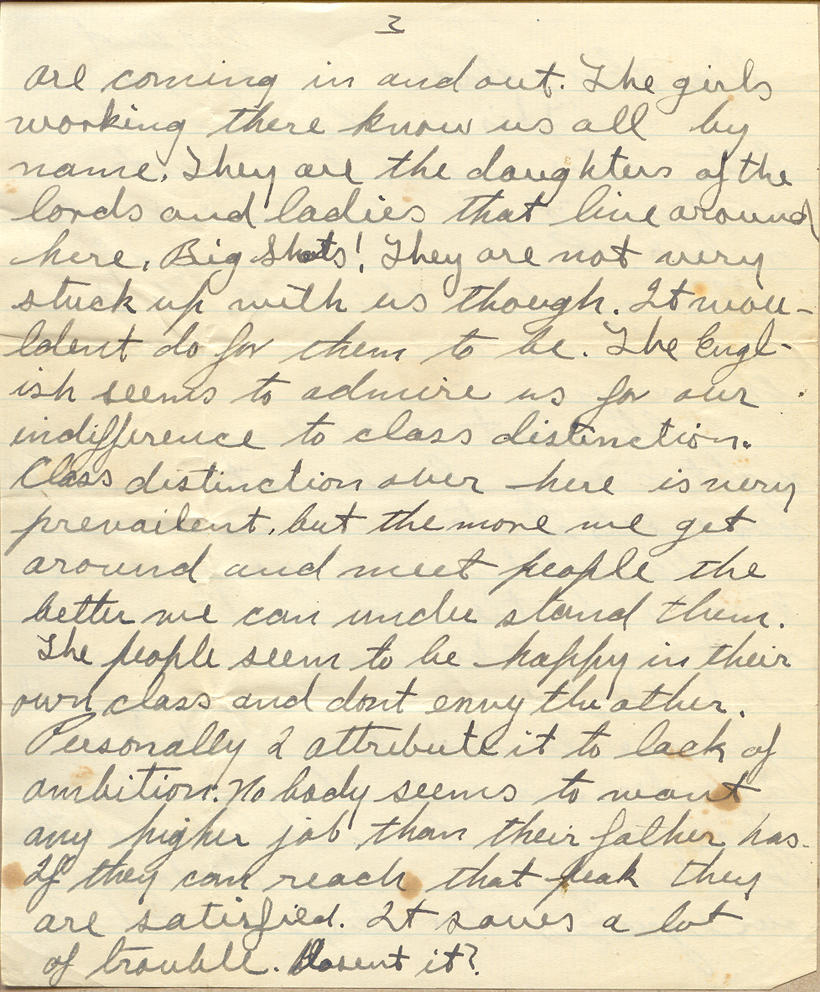 3
are coming in and out. The girls
working there know us all by
name. They are the daughters of the
lords and ladies that live around
here. Big Shots! They are not very
stuck up with us though. It wou-
ldent do for them to be. The Engl-
ish seems to admire us for our
indifference to class distinction.
Class distinction over here is very
prevailent, but the more we get
around and meet people the
better we can under stand them.
The people seem to be happy in their
own class and dont envy the other.
Personally I attribute it to lack of
ambition. No body seems to want
any higher job than their father has.
If they can reach that peak they
are satisfied. It saves a lot
of trouble. Dosent it?